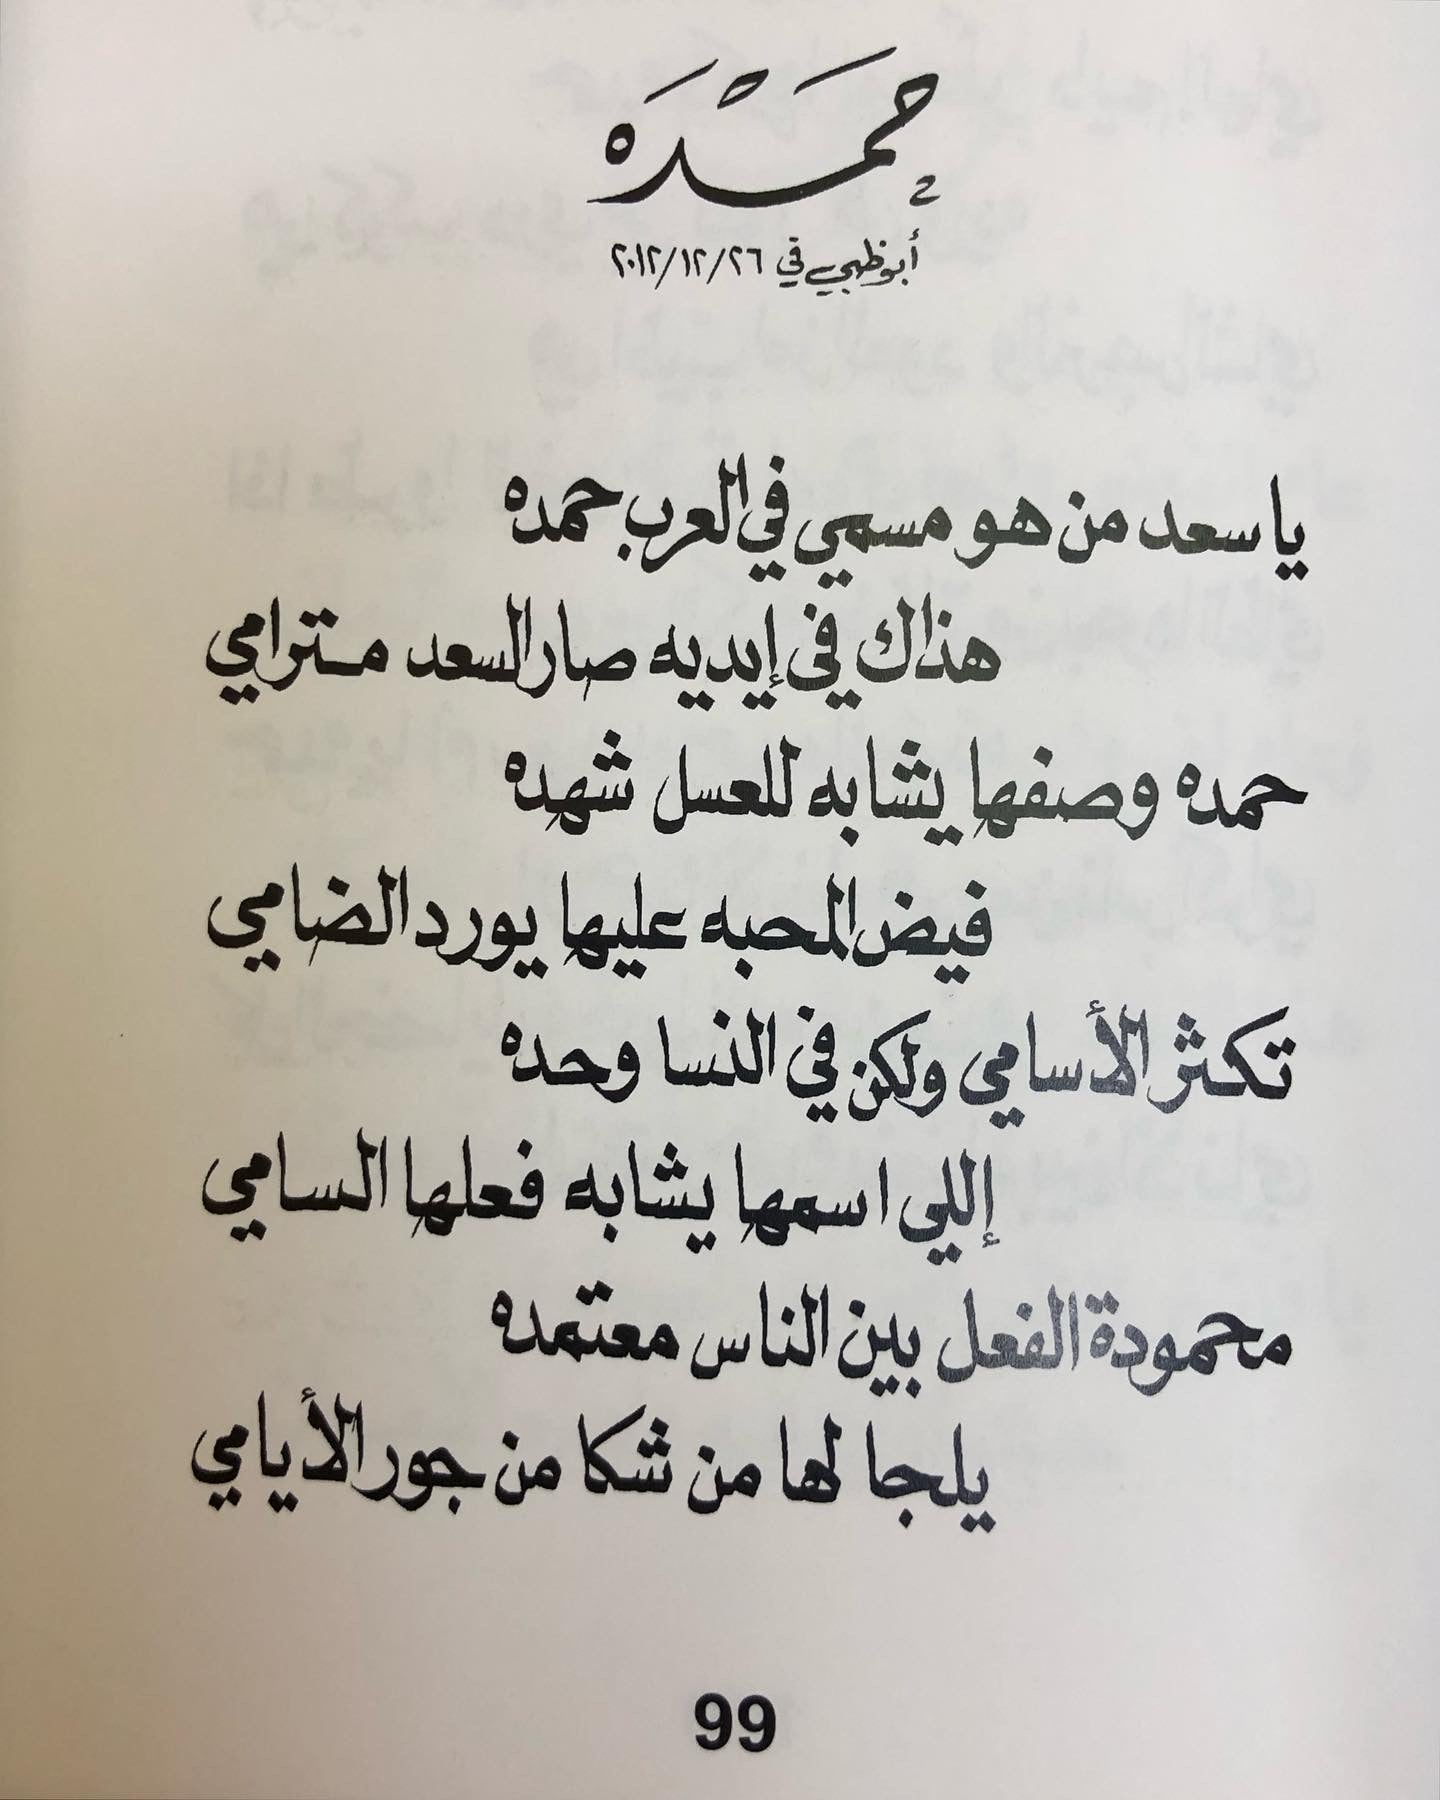 حمده
أبوظبي في ٢٠١٢/١٢/٢٦
يا سعد من هو مسمي في العرب حمده
هذاك في إيديه صار السعد مترامي
حمده وصفها يشابه للعسل شهده
فيض المحبه عليها يورد الضامي
تكثر الأسامي ولكن في النسا وحده
إللي اسمها يشابه فعلها السامي
محمودة الفعل بين الناس معتمده
يلجا لها من شكا من جور الأيامي
99